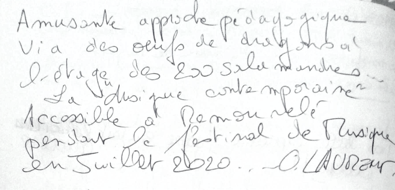 Amusante approche pédagogique
via des oeufs de dragons à
l'étage des 200 salamandres...
"La Musique contemporaine"
Accessible à
pendant le festival de Musique
en Juillet 2020... O. LAURENT.